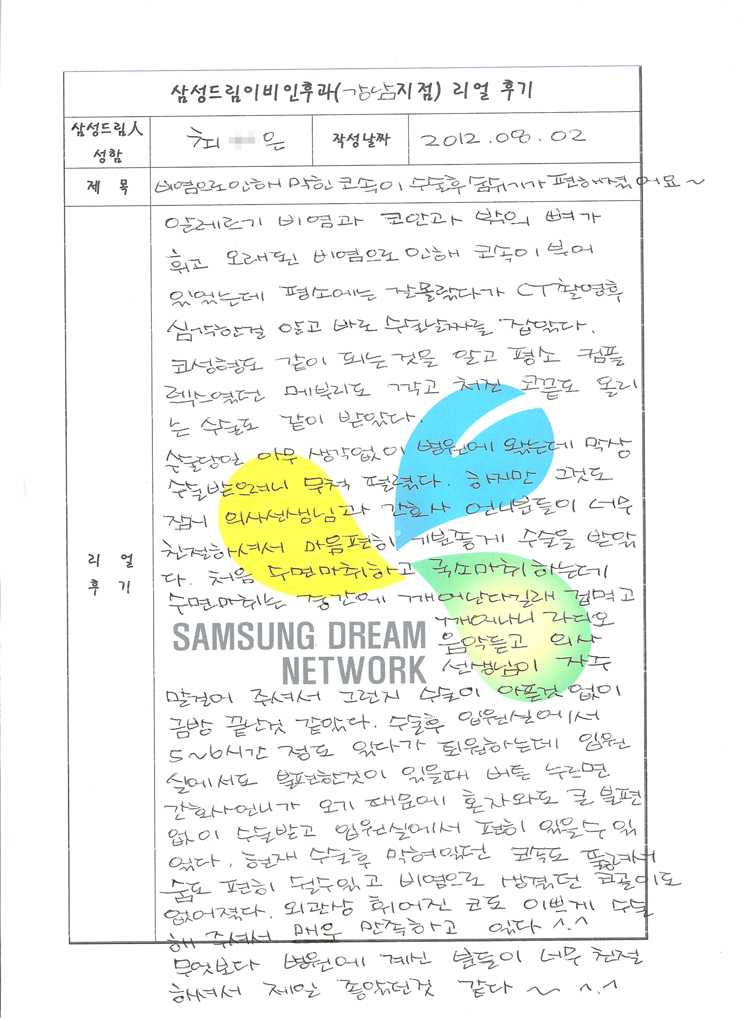 삼성드림이비인후과(강남지점) 리얼 후기
삼성드림人 성함
최 은
작성날짜
2012.08.02
제 목
비염으로인해 막힌 코속이 수술후 숨쉬기가 편해졌어요~
리 얼
후 기
알레르기 비염과 코안과 밖의 뼈가
휘고 오래된 비염으로 인해 코속이 부어
있었는데 평소에는 잘몰랐다가 CT촬영후
심각한걸 알고 바로 수술날짜를 잡았다.
코성형도 같이 되는것을 알고 평소 컴플
렉스였던 메부리도 깍고 처진 코끝도 올리
는 수술도 같이 받았다.
수술당일 아무 생각없이 병원에 왔는데 막상
수술받으려니 무척 떨렸다. 하지만 그것도
잠시 의사선생님과 간호사 언니분들이 너무
친절하셔서 마음편히 기분좋게 수술을 받았
다. 처음 수면마취하고 국소마취하는데
수면마취는 중간에 깨어난다길래 겁먹고
깨어나니 라디오
음악듣고 의사
선생님이 자주
SAMSUNG DREAM
NETWORK
말걸어 주셔서 그런지 수술이 아픈것 없이
금방 끝난것 같았다. 수술후 입원실에서
5~6시간 정도 있다가 퇴원하는데 입원
실에서도 불편한것이 있을때 버튼 누르면
간호사언니가 오기 때문에 혼자와도 큰 불편
없이 수술받고 입원실에서 편히 있을수 있
었다. 현재 수술후 막혀있던 코속도 뚫려서
숨도 편히 쉴수있고 비염으로 생겼던 코골이도
없어졌다. 외관상 휘어진 코도 이쁘게 수술
해 주셔서 매우 만족하고 있다 ^.^
무엇보다 병원에 계신 분들이 너무 친절
하셔서 제일 좋았던것 같다 ~ ^.^